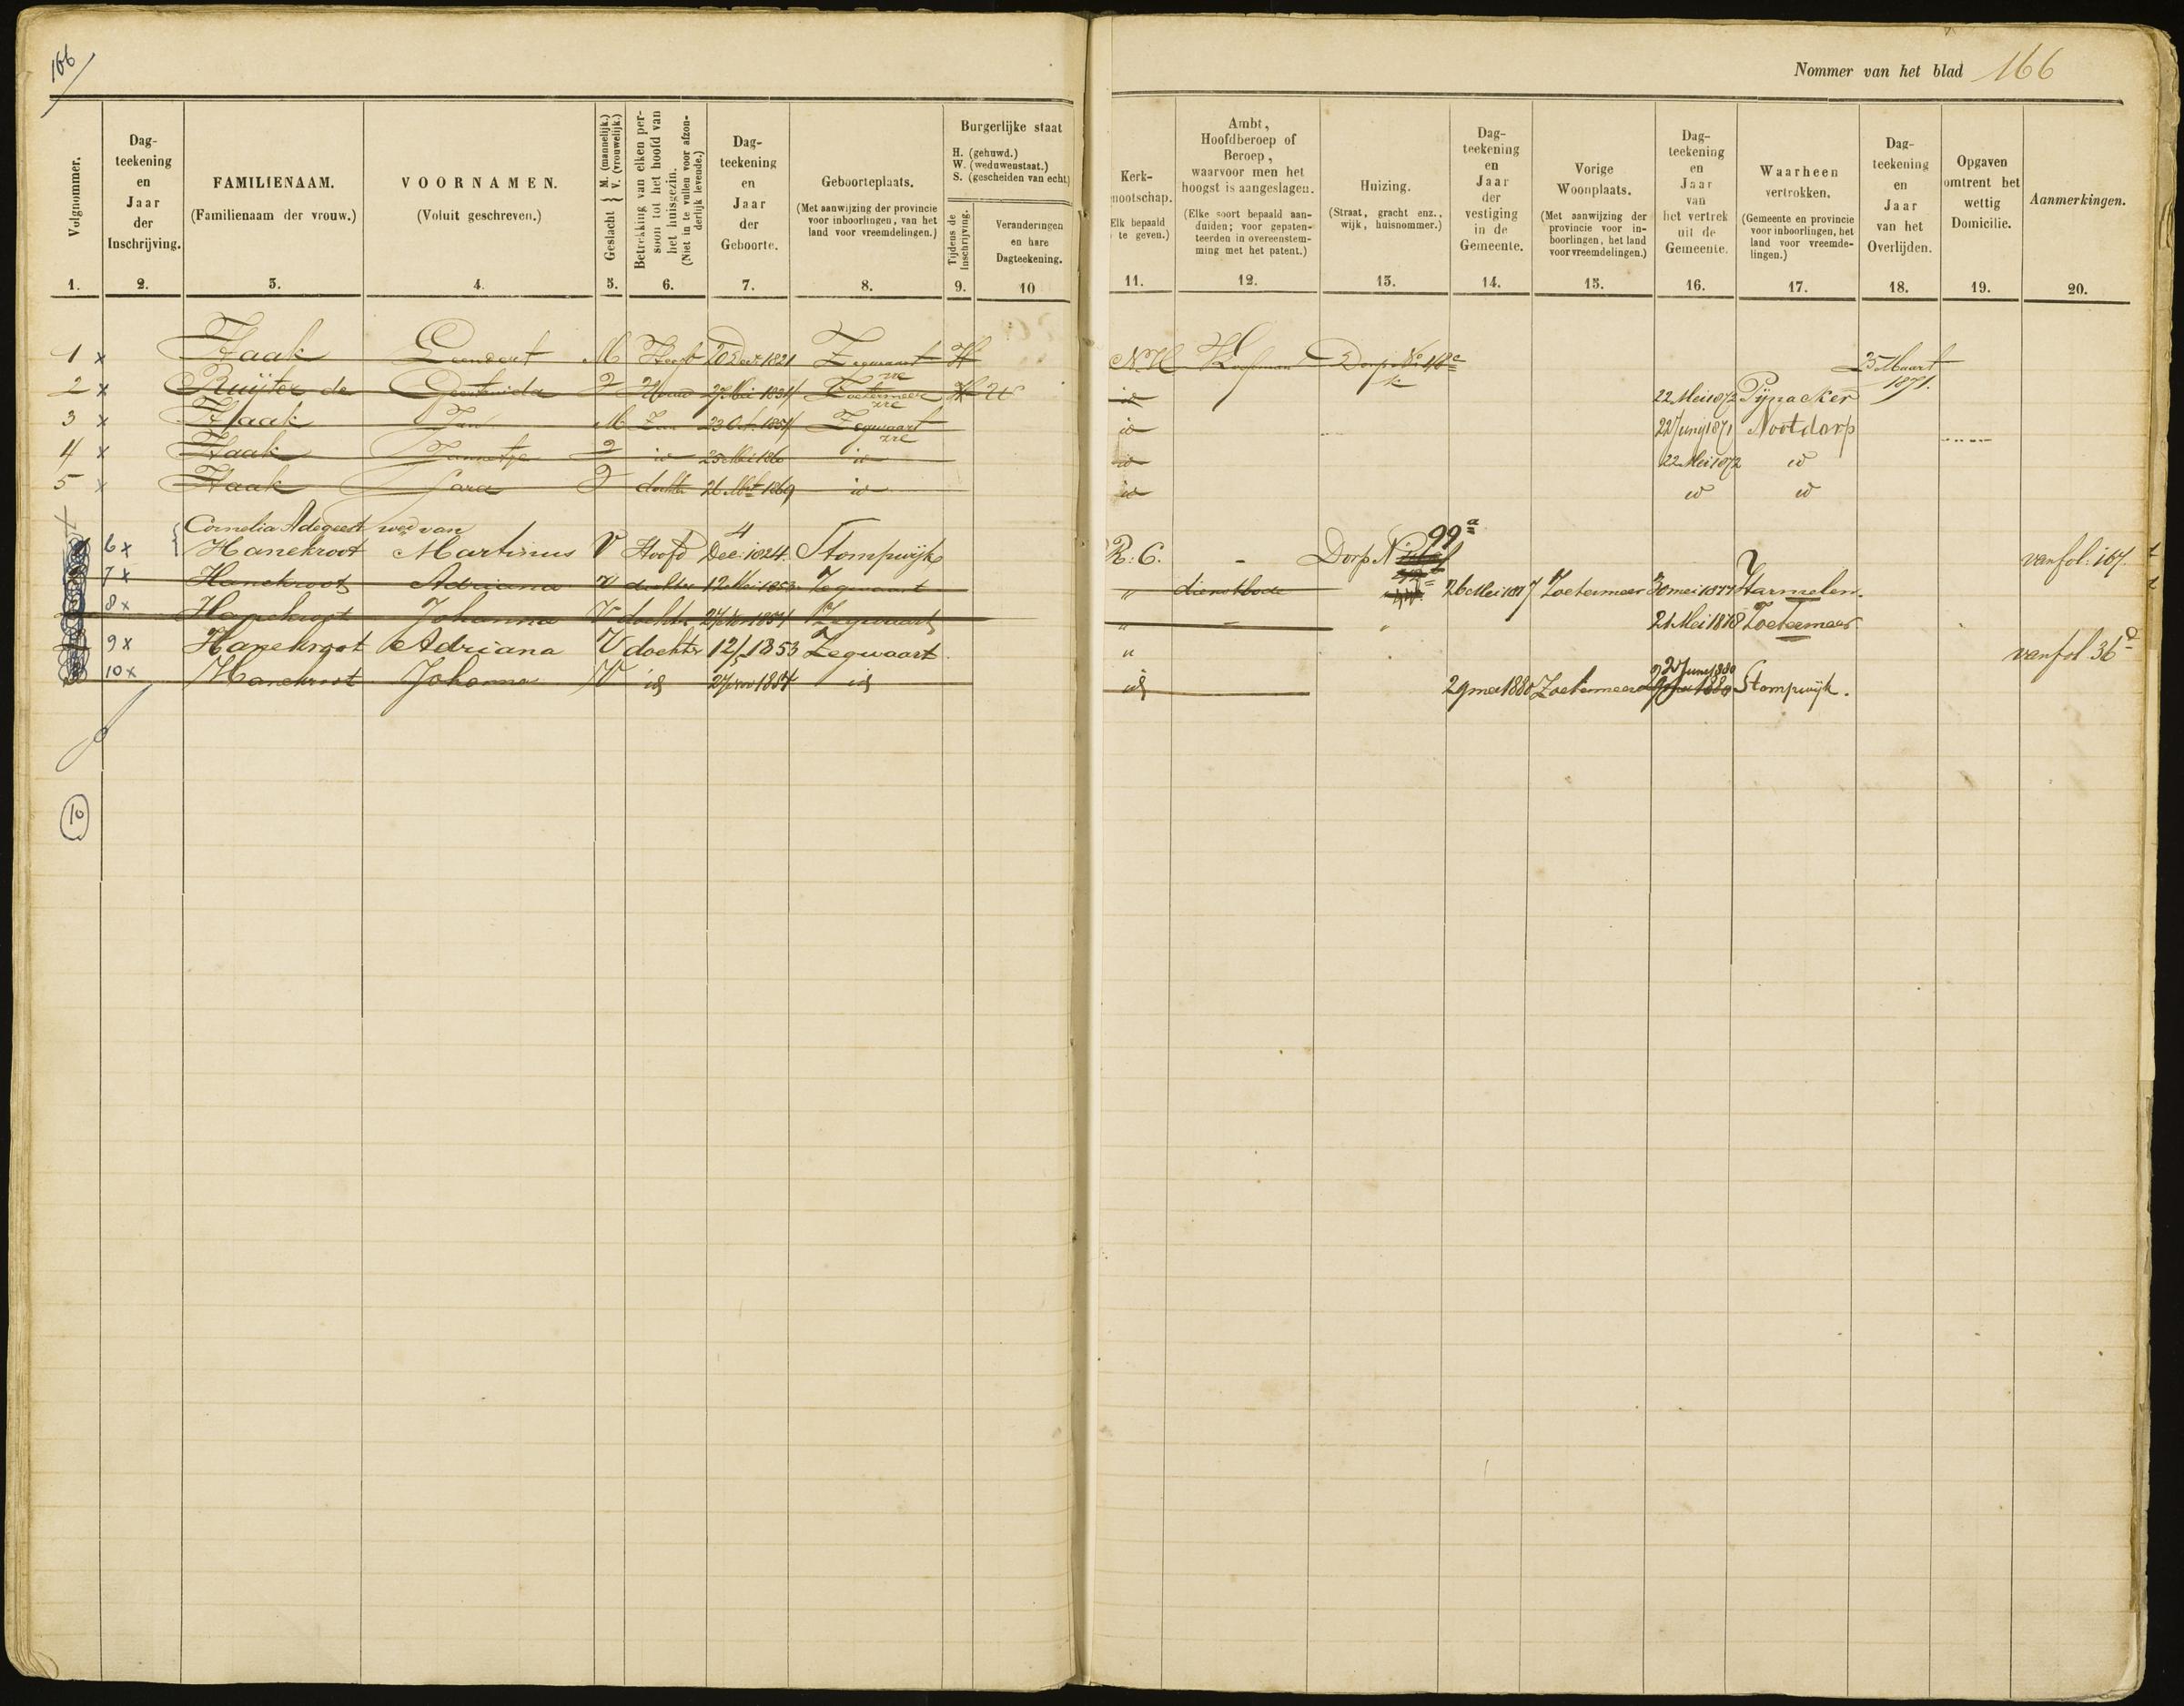 166
Nommer van het blad 166
Volgnommer.
Dag-
teekening
en
Jaar
der
Inschrijving.
FAMILIENAAM.
(Familienaam der vrouw.)
VOORNAMEN.
(Voluit geschreven.)
Geslacht { M. (mannelijk.) V. (vrouwelijk.)
Betrekking van elken per-
soon tot het hoofd van
het huisgezin.
(Niet in te vullen voor afzon-
derlijk levende.)
Dag-
teekening
en
Jaar
der
Geboorte.
Geboorteplaats.
(Met aanwijzing der provincie
voor inboorlingen, van het
land voor vreemdelingen.)
Burgerlijke staat
H. (gehuwd.)
W. (weduwenstaat.)
S. (gescheiden van echt)
Tijdens de
Inschrijving.
Veranderingen
en hare
Dagteekening.
Kerk-
nootschap.
Elk bepaald
te geven.)
Ambt,
Hoofdberoep of
Beroep,
waarvoor men het
hoogst is aangeslagen.
(Elke soort bepaald aan-
duiden; voor gepaten-
teerden in overeenstem-
ming met het patent.)
Huizing.
(Straat, gracht enz.,
wijk, huisnommer.)
Dag-
teekening
en
Jaar
der
vestiging
in de
Gemeente.
Vorige
Woonplaats.
(Met aanwijzing der
provincie voor in-
boorlingen, het land
voor vreemdelingen.)
Dag-
teekening
en
Jaar
van
het vertrek
uit de
Gemeente.
Waarheen
vertrokken.
(Gemeente en provincie
voor inboorlingen, het
land voor vreemde-
lingen.)
Dag-
teekening
en
Jaar
van het
Overlijden.
Opgaven
omtrent het
wettig
Domicilie.
Aanmerkingen.
1. 2. 3. 4. 5. 6. 7. 8. 9. 10
11. 12. 13. 14. 15. 16. 17. 18. 19. 20.
1 x Haak Leendert M Hoofd 20 Dec 1821 Zegwaart H NH Koopman Dorp No 25 Maart 1871.
2 x Ruijter de Geertruida V Mei Zoetermeer H W id 22 Mei 1872 Pijnacker
3 x Haak Jan M Zoon 23 Oct Zegwaart id 22 Junij 1871 Nootdorp
4 x Haak Jannetje V id 25 Mei 1860 id id 22 Mei 1872 id
5 x Haak Sara V dochter 26 1869 id id id id
Cornelia Adegeest wed van
6 x Hanekroot Martinus V Hoofd 4 Dec: 1824. Stompwijk R: C. - Dorp N 99a van fol: 187.
7 x Hanekroot Adriana V dochter 12 Mei 1853 Zegwaart " dienstbode 26 Mei 1877 Zoetermeer 30 mei 1877 Harmelen.
8 x Hanekroot Johanna V dochter 27 Nov 1854 Zegwaart " - " 21 Mei 1878 Zoetermeer
9 x Hanekroot Adriana V dochtr 12/5 1853 Zegwaart. " van fol 36
10 x Hanekroot Johanna V id 27 nov 1854 id id 29 mei 1880 Zoetermeer 27 Juny 1880 Stompwijk.
10